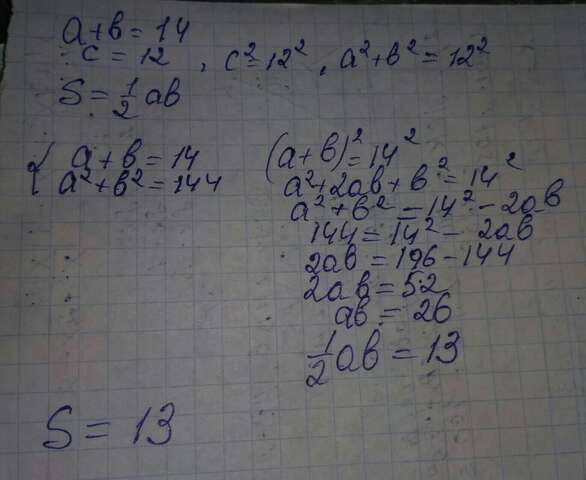 a+b=14
c=12, c²=12², a²+b²=12²
S=½ab
{ a+b=14
a²+b²=144
(a+b)²=14²
a²+2ab+b²=14²
a²+b²=14²-2ab
144=14²-2ab
2ab=196-144
2ab=52
ab=26
½ab=13
S=13